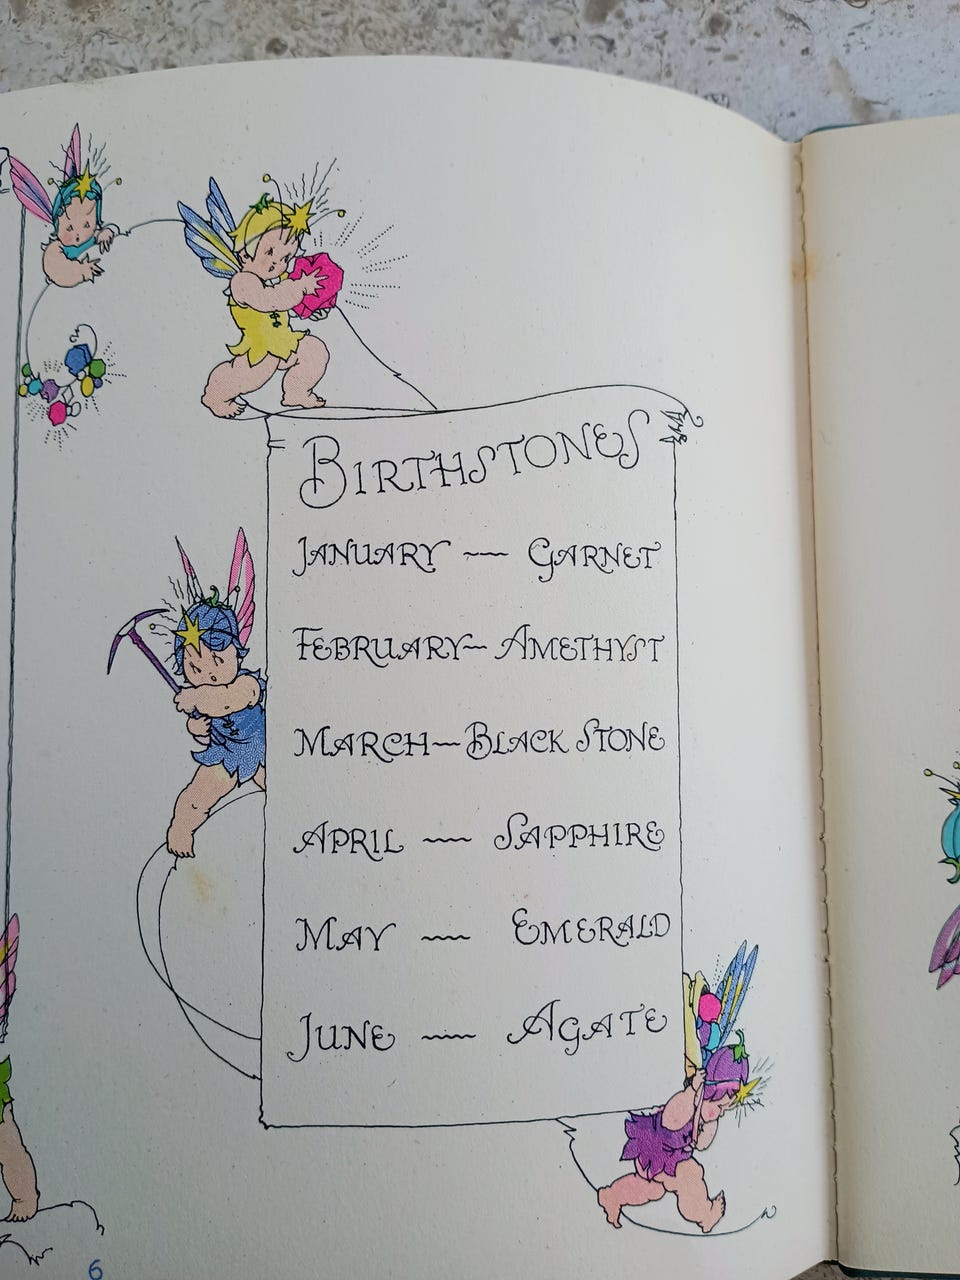 BIRTHSTONES
JANUARY ~~ GARNET
FEBRUARY ~ AMETHYST
MARCH ~ BLACK STONE
APRIL ~~ SAPPHIRE
MAY ~~ EMERALD
JUNE ~~ AGATE
6